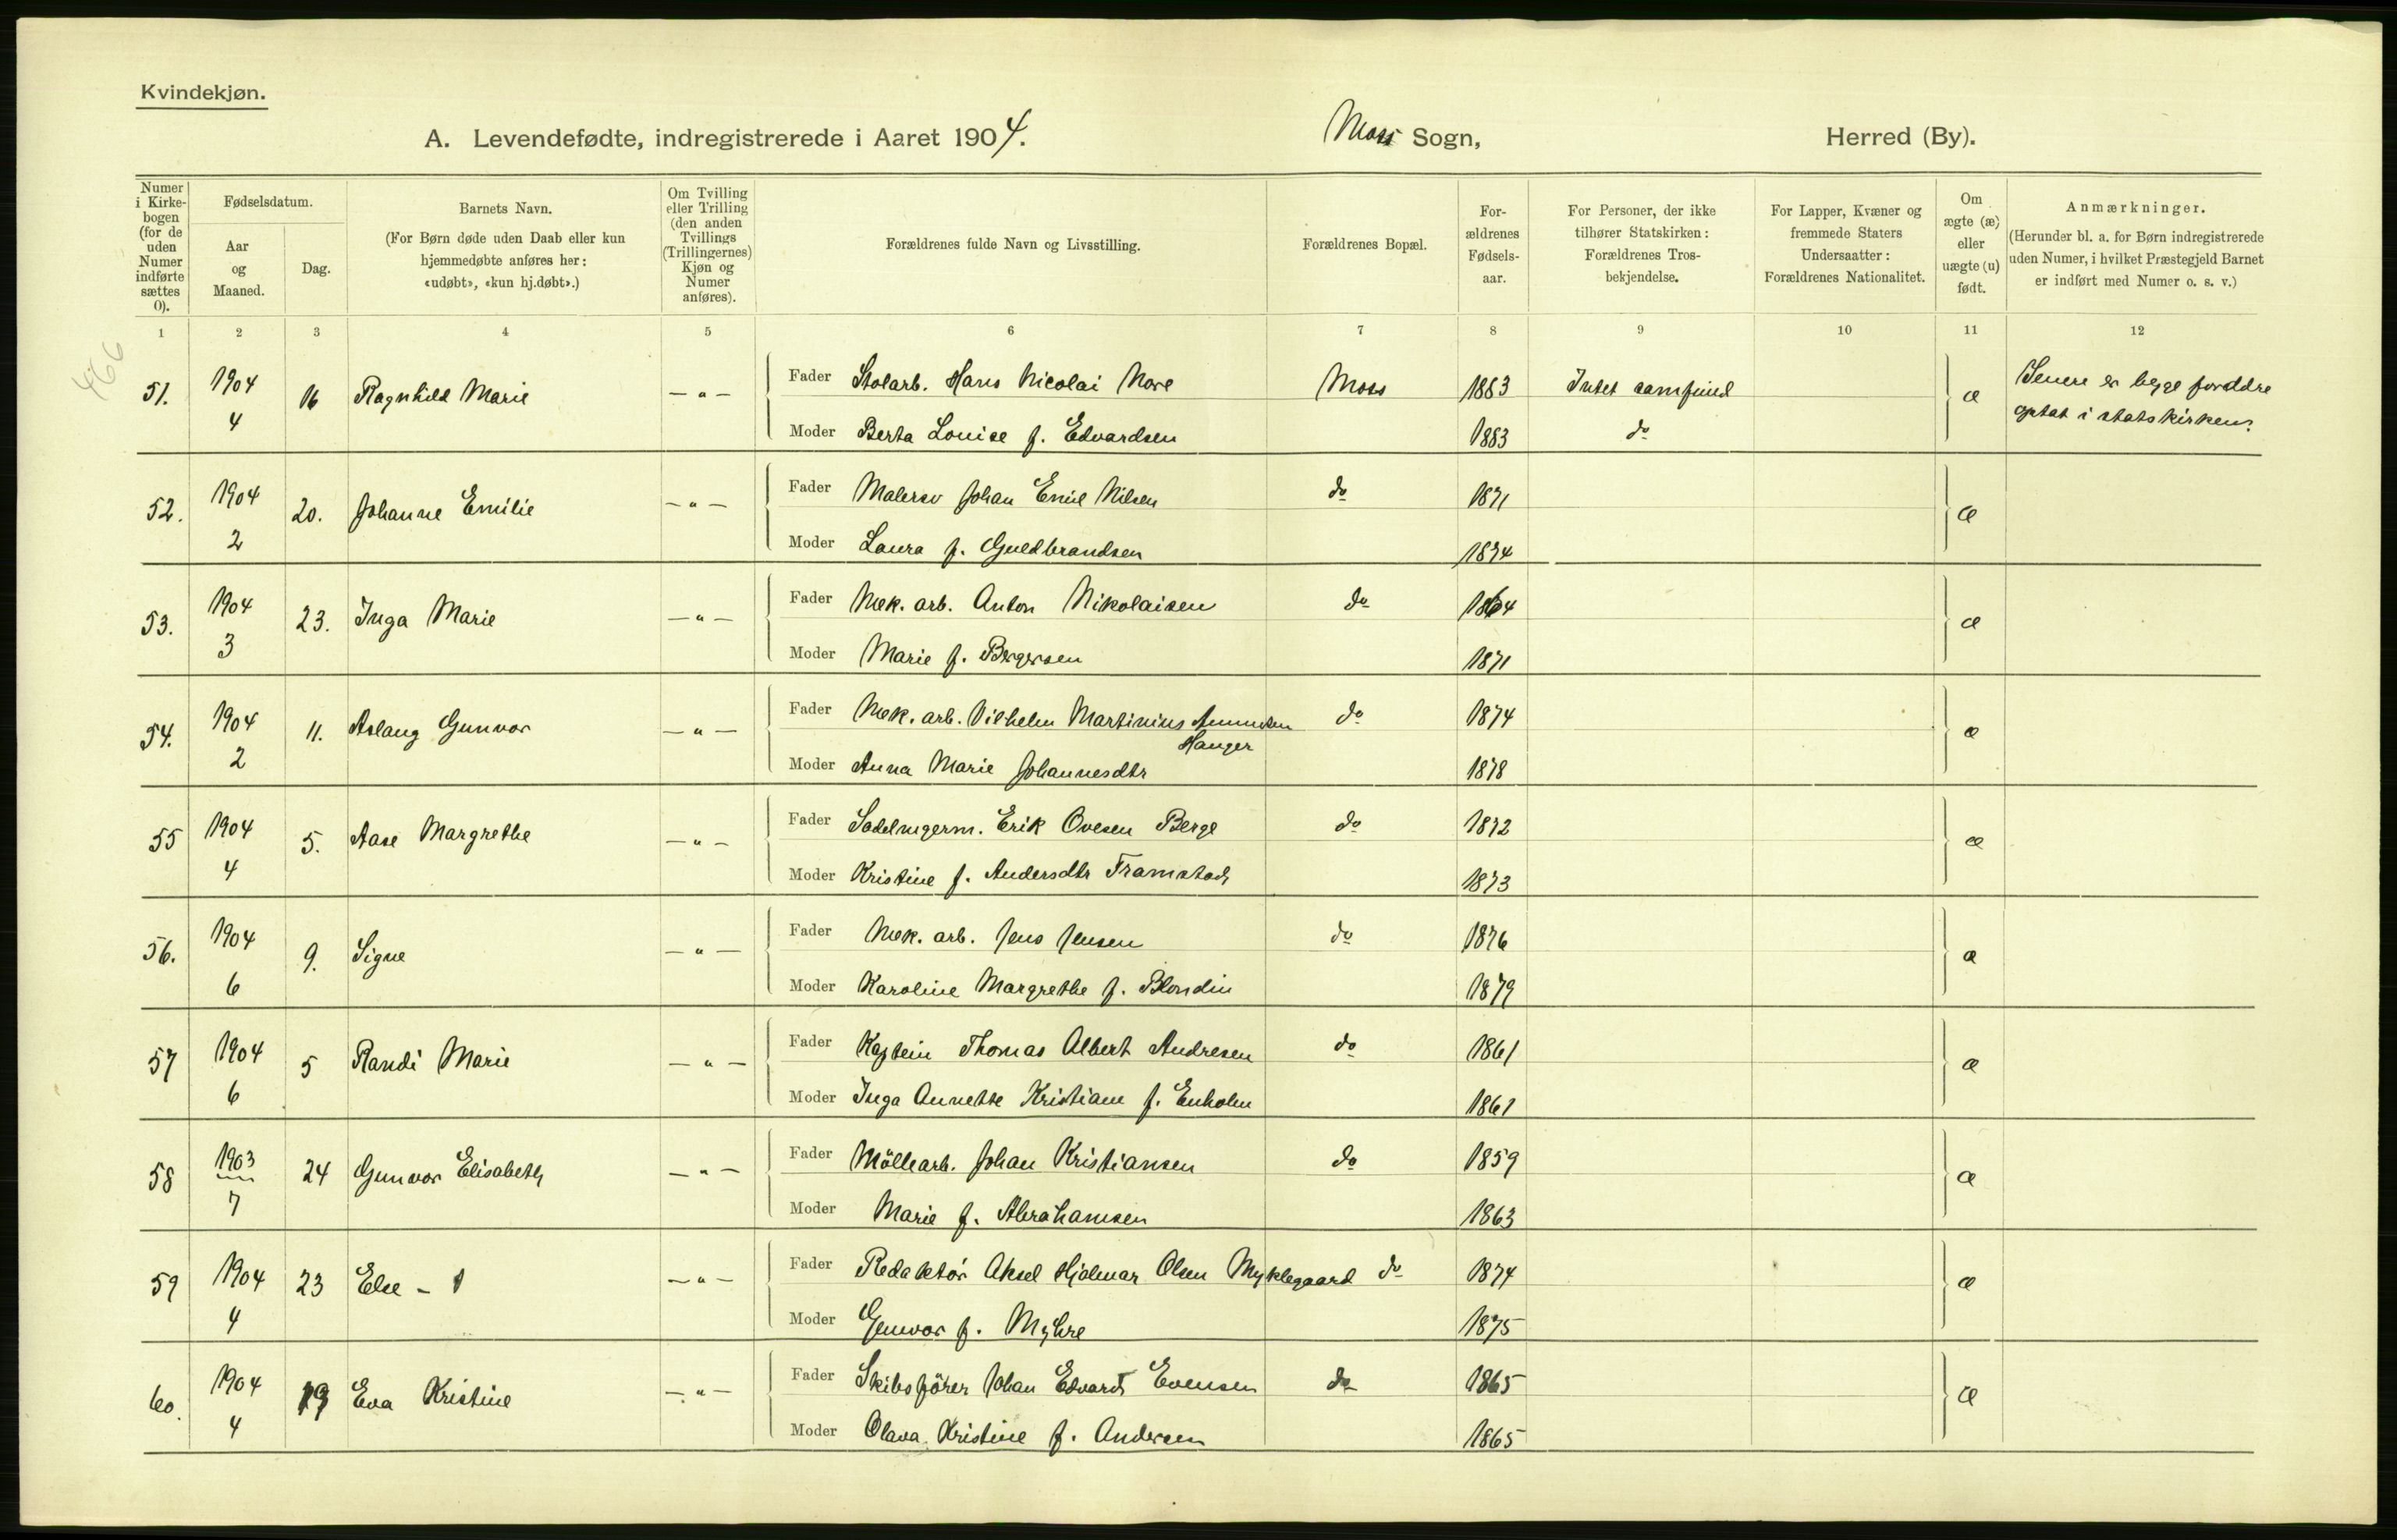 Kvindekjøn.
A. Levendefødte, indregistrerede i Aaret 1904. Moss Sogn, Herred (By).
Numer i Kirkebogen (for de uden Numer indførte sættes 0).
Fødselsdatum.
Aar og Maaned.
Dag.
Barnets Navn.
(For Børn døde uden Daab eller kun hjemmedøbte anføres her: «udøbt», «kun hj.døbt».)
Om Tvilling eller Trilling (den anden Tvillings (Trillingernes) Kjøn og Numer anføres).
Forældrenes fulde Navn og Livsstilling.
Forældrenes Bopæl.
Forældrenes Fødselsaar.
For Personer, der ikke tilhører Statskirken: Forældrenes Trosbekjendelse.
For Lapper, Kvæner og fremmede Staters Undersaatter: Forældrenes Nationalitet.
Om ægte (æ) eller uægte (u) født.
Anmærkninger.
(Herunder bl. a. for Børn indregistrerede uden Numer, i hvilket Præstegjeld Barnet er indført med Numer o. s. v.)
1 2 3 4 5 6 7 8 9 10 11 12
466
51. 1904 4 16 Ragnhild Marie — " — Fader Stolarb. Hans Nicolai Nore Moss 1883 Intet samfund æ Senere er begge forældre
optat i statskirken.
Moder Berta Louise f. Edvardsen 1883 do
52. 1904 2 20. Johanne Emilie — " — Fader Malersv Johan Emil Nilsen do 1871 æ
Moder Laura f. Guldbrandsen 1874
53. 1904 3 23. Inga Marie — " — Fader Mek. arb. Anton Nikolaisen do 1864 æ
Moder Marie f. Bergersen 1871
54. 1904 2 11. Aslaug Gunvor — " — Fader Mek. arb. Vilhelm Martinius Amundsen do 1874 æ
Hauger
Moder Anna Marie Johannesdtr 1878
55 1904 4 5. Aase Margrethe — " — Fader Sadelmagerm. Erik Ovesen Berge do 1872 æ
Moder Kristine f. Andersdtr Framstad 1873
56. 1904 6 9. Signe — " — Fader Mek. arb. Jens Jensen do 1876 æ
Moder Karoline Margrethe f. Blondin 1879
57 1904 6 5 Randi Marie — " — Fader Kaptein Thomas Albert Andresen do 1861 æ
Moder Inga Annette Kristiane f. Enholm 1861
58 1903 7 24 Gunvor Elisabeth — " — Fader Möllearb. Johan Kristiansen do 1859 æ
Moder Marie f. Abrahamsen 1863
59 1904 4 23 Else — " — Fader Redaktör Aksel Hjalmar Olsen Myklegaard do 1874 æ
Moder Gunvor f. Myhre 1875
60. 1904 4 Eva Kristine — " — Fader Skibsförer Johan Edvard Evensen do 1865 æ
Moder Olava Kristine f. Andersen 1865